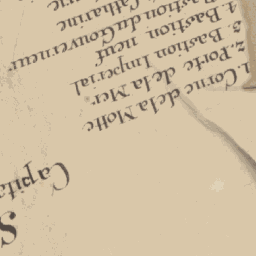 Capita
1. Corne de la Motte
2. Porte de la Mer
3. Bastion Imperial
4. Bastion neuf
Bastion du Gouverneur
Catharine